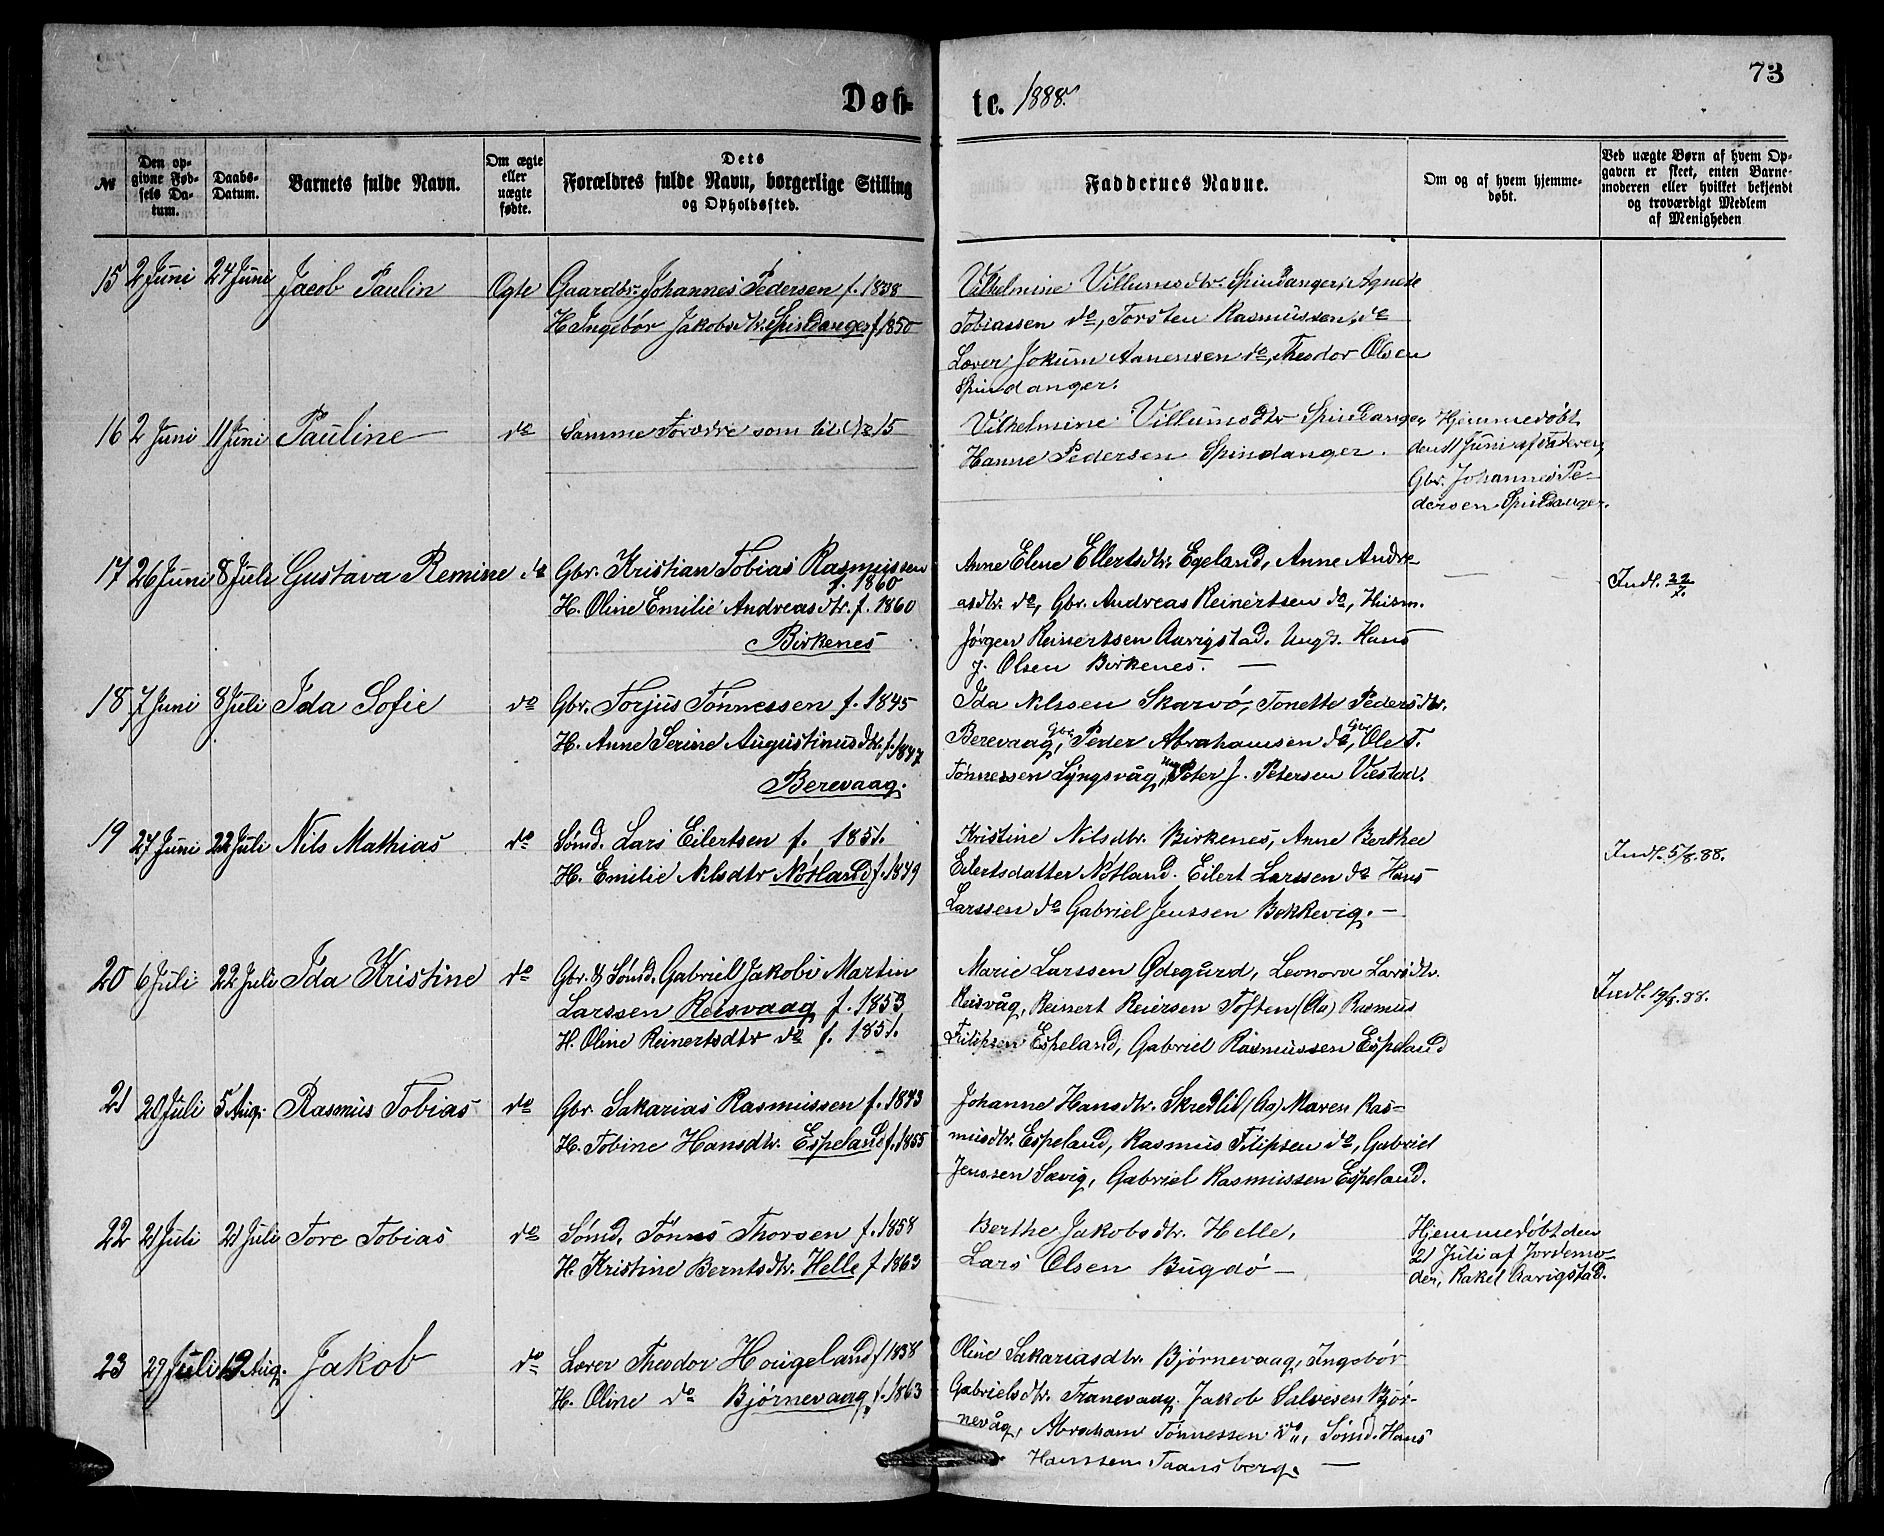 73
Døb-
te. 1888.
№
Den op-
givne Fød-
sels Da-
tum.
Daabs-
Datum.
Barnets fulde Navn.
Om ægte
eller
uægte
fødte.
Dets
Forældres fulde Navn, borgerlige Stilling
og Opholdssted.
Faddernes Navne.
Om og af hvem hjemme-
døbt.
Ved uægte Børn af hvem Op-
gaven er skeet, enten Barne-
moderen eller hvilket bekjendt
og troværdigt Medlem
af Menigheden
15 2 Juni 24 Juni Jacob Paulin Ogte Gaardbr. Johannes Pedersen f. 1838
H. Ingebør Jakobsdtr. Spindanger f. 1850
Vilhelmine Villumsdtr. Spindanger, Agnete
Tobiassen do, Torsten Rasmussen, do
Lærer Jokum Aanensen do, Theodor Olsen
Spindanger.
16 2 Juni 11 Juni Pauline do Samme Forældre som til № 15
Vilhelmine Villumsdtr Spindanger,
Hanne Pedersen Spindanger.
Hjemmedøbt
den 11 Juni af Faderen,
Gbr. Johannes Pe-
dersen Spindanger.
17 26 Juni 8 Juli Gustava Remine do Gbr. Kristian Tobias Rasmussen
f. 1860
H. Oline Emilie Andreasdtr. f. 1860
Birkenes
Anne Elene Ellertsdtr. Egeland, Anne Andre-
asdtr. do, Gbr. Andreas Reinertsen do, Husm.
Jørgen Reinertsen Aarigstad. Ungk. Hans
J. Olsen Birkenes. —
Indl. 22/7.
18 7 Juni 8 Juli Ida Sofie do Gbr. Torjus Tønnessen f. 1845
H. Anne Serine Augustinusdtr. f. 1847
Berevaag.
Ida Nilssen Skarvø, Tonette Pedersdtr.
Berevaag, Gbr. Peder Abrahamsen do, Gbr. Ole T.
Tønnessen Lyngsvåg, Ungk. Peter J. Petersen Væstad.
19 27 Juni 22 Juli Nils Mathias do Sømd. Lars Eilertsen f. 1851.
H. Emilie Nilsdtr Nøtland f. 1849
Kristine Nilsdtr. Birkenes, Anne Berthea
Eilertsdatter Nøtland. Eilert Larssen do Hans
Larssen do Gabriel Jenssen Bokkevig. —
Indl. 5/8. 88.
20 6 Juli 22 Juli Ida Kristine do Gbr. & Sømd. Gabriel Jakobi Martin
Larssen Reisvaag f. 1853
H. Oline Reinertsdtr do f. 1851.
Marie Larssen Ødegård, Leonora Larsdtr.
Reisvåg, Reinert Reiersen Toften (Aa) Rasmus
Filipsen Espeland, Gabriel Rasmussen Espeland
Indl. 19/8. 88.
21 20 Juli 5 Aug. Rasmus Tobias do Gbr Sakarias Rasmussen f. 1843
H. Tobine Hansdtr. Espeland f. 1855
Johanne Hansdtr. Skredlil (Aa) Maren Ras-
musdtr. Espeland, Rasmus Filipsen do, Gabriel
Jenssen Sævig, Gabriel Rasmussen Espeland.
22 21 Juli 21 Juli Tore Tobias do Sømd. Tønnes Thorsen f. 1858
H. Kristine Berntsdtr. Helle f 1863
Berthe Jakobsdtr. Helle,
Lars Olsen Bugdø —
Hjemmedøbt den
21 Juli af Jordemo-
der, Rakel Aarigstad.
23 29 Juli 19 Aug. Jakob do Lærer Theodor Hougeland f 1838
H. Oline do Bjørnevaag, f. 1863
Oline Sakariasdtr. Bjørnevaag, Ingebør
Gabrielsdtr. Tranevaag. Jakob Salvesen Bjør-
nevåg, Abraham Tønnessen do, Sømd. Hans
Hanssen Taansberg. —